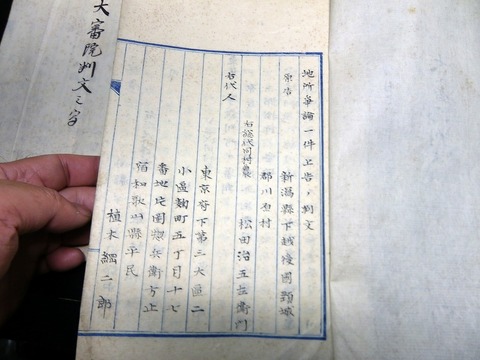 地所爭論一件上告ノ判文
原告
新潟縣下越後國頸城
郡川村
右総代同村農 松田治五左衛門
右代人
東京府下第三大區二
小區麹町五丁目十七
番地園惣兵衛方止
宿和歌山縣平民
植木綱二郎
大審院判文之写